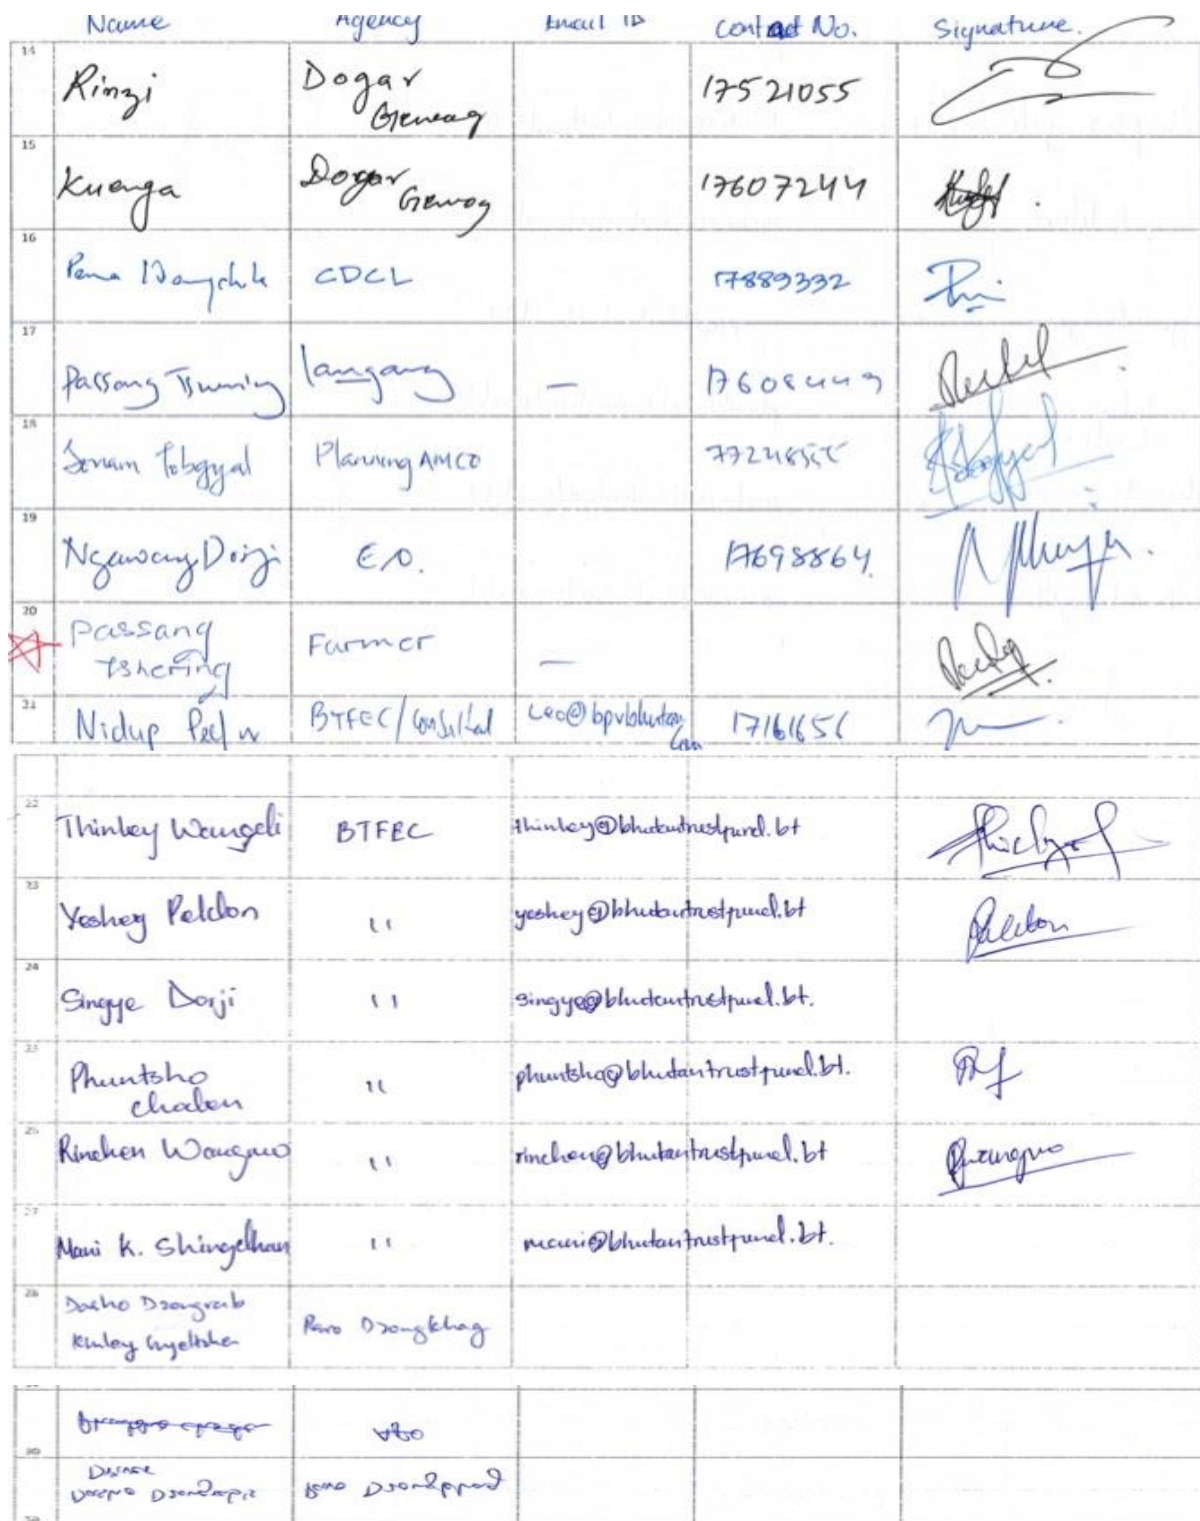 Name Agency Email ID Contact No. Signature.
14 Rinzi Dogar Gewog 17521055
15 Kuenga Dogar Gewog 17607244
16 Pema Wangchuk CDCL 17889332
17 Passang Tshering langang — 17608449
18 Sonam Tobgyal Planning AMCO
19 Ngawang Dorji E.O. 17698864.
20 Passang Tshering Farmer —
21 Nidup BTFEC/ 17161656
22 Thinley Wangdi BTFEC thinley@bhutantrustfund.bt
23 Yeshey Peldon " yeshey@bhutantrustfund.bt
24 Singye Dorji " singye@bhutantrustfund.bt.
25 Phuntsho Choden " phuntsho@bhutantrustfund.bt.
26 Rinchen Wangmo " rinchen@bhutantrustfund.bt
27 Mani K. " mani@bhutantrustfund.bt.
28 Dasho Dzongrab
Kinley Gyeltshen Paro Dzongkhag
30